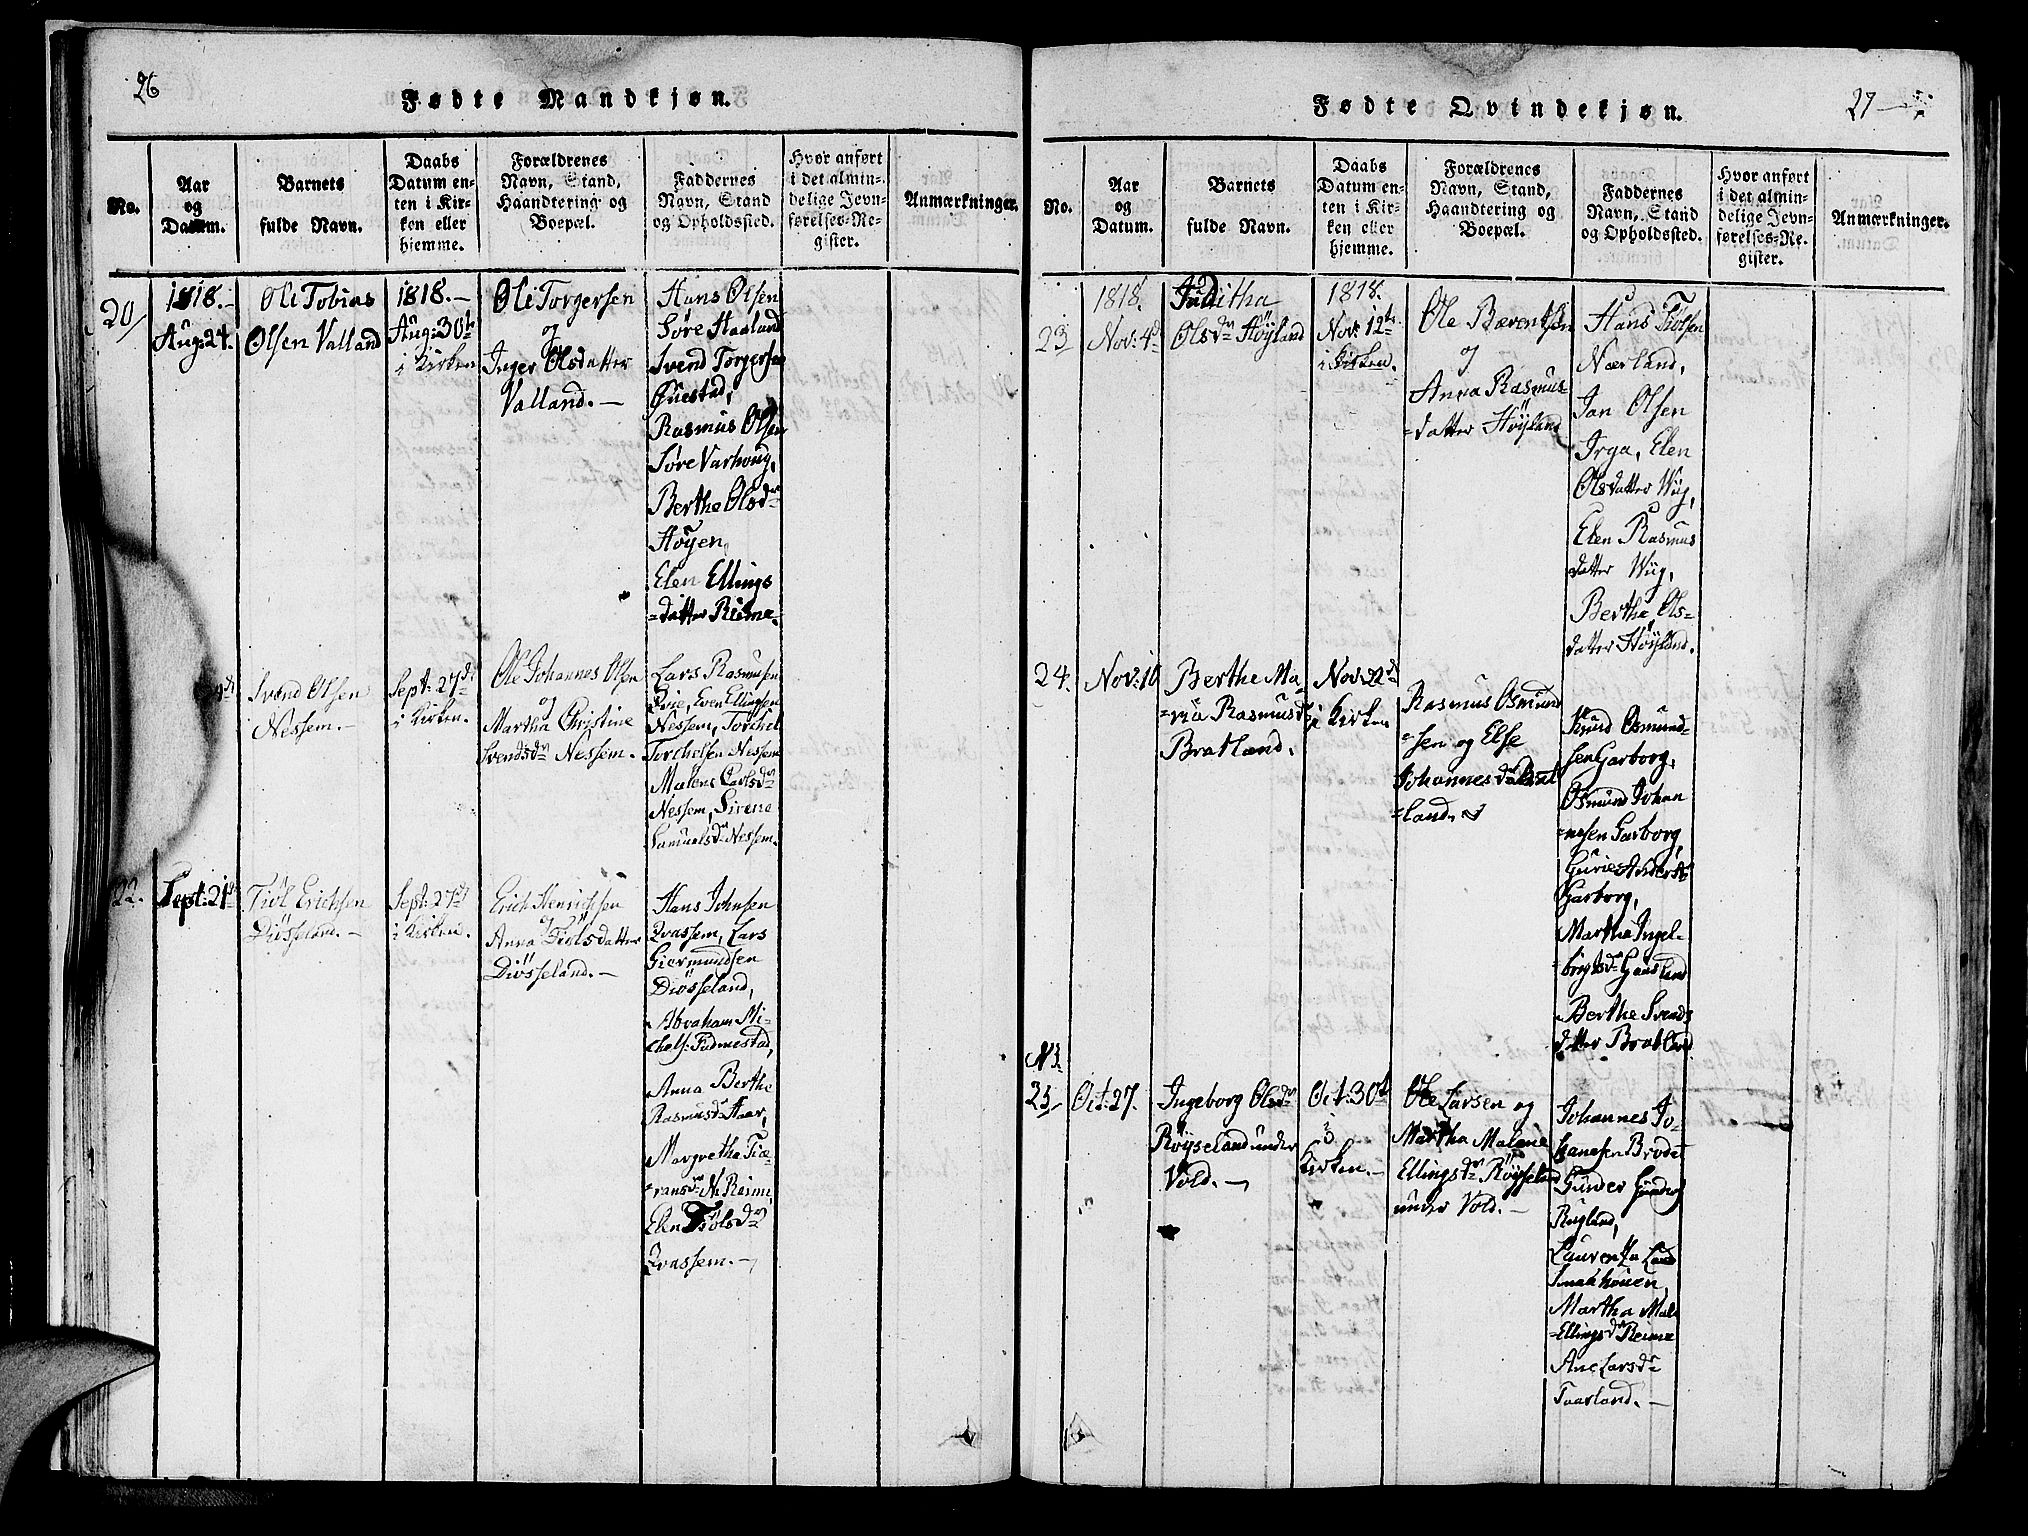 26
Fødte Mandkjøn.
No.
Aar
og
Datum.
Barnets
fulde Navn.
Daabs
Datum en-
ten i Kir-
ken eller
hjemme.
Forældrenes
Navn, Stand,
Haandtering og
Boepæl.
Faddernes
Navn, Stand
og Opholdssted.
Hvor anført
i det almin-
delige Jevn-
førelses-Re-
gister.
Anmærkninger.
20
1818.-
Aug: 24.
Ole Tobias
Olsen Valland
1818.-
Aug: 30te
i Kirken
Ole Torgersen
og
Inger Olsdatter
Valland.-
Hans Olsen
Søre Haaland
Svend Torgersen
Rasmus Olsen
Søre Varhoug,
Berthe Olsdr
Høyen,
Elen Ellings
=datter Reime.
Svend Olsen
Nessem.-
Sept: 27de
i Kirken.
Ole Johannes Olsen
og
Martha Christine
Svendsdr Nessem.
Lars Rasmusen
Qvie, Even Ellingsen
Nessem, Torchel
Torchelsen Nessem
Malene Larsdr
Nessem, Sirene
Samuelsdr Nessem.
22.
Sept: 21de
Tiøl Erichsen
Diøsseland.-
Sept: 27de
i Kirken.
Erich Henrichsen
og
Anna Tiølsdatter
Diøsseland.-
Hans Johnsen
Qvassem, Lars
Giermundsen
Diøsseland,
Abraham Mi-
chels: Fudmestad,
Anna Berthe
Rasmusdr Haar,
Margretha Tiæ-
=ransdr N: Reime,
Elen Tiølsdr
Qvassem.-
27
Fødte Qvindekjøn.
No.
Aar
og
Datum.
Barnets
fulde Navn.
Daabs
Datum en-
ten i Kir-
ken eller
hjemme.
Forældrenes
Navn, Stand,
Haandtering og
Boepæl.
Faddernes
Navn, Stand
og Opholdssted.
Hvor anført
i det almin-
delige Jevn-
førelses-Re-
gister.
Anmærkninger.
23
1818.
Nov: 4de
Juditha
Olsdr Høyland
1818.
Nov: 12te
i Kirken.
Ole Bærentsen
og
Anna Rasmus
=datter Høyland
Hans Tiølsen
Nærland,
Jan Olsen
Irga, Elen
Olsdatter Wiig,
Elen Rasmus
datter Wiig,
Berthe Ols=
datter Høyland.
24.
Nov: 10
Berthe Ma-
=ria Rasmusdr
Bratland.
Nov: 22de
i Kirken
Rasmus Osmund
=sen og Else
Johannesdr Brat
=land.
Knud Osmund-
sen Garborg,
Osmund Johan
=nesen Garborg,
Gurie Andersdr
Garborg,
Martha Ingel-
=borgtsdr Gausland
Berthe Svends
datter Bratland
N3.
25
Oct: 27.
Ingeborg Olsdr
Røyseland under
Vold.-
Oct: 30te
i
Kirken.-
Ole Larsen og
Martha Malene
Ellingsdr Røysseland
under Vold.-
Johannes Jo-
hanesen Brode
Gunder
Rugland,
Martha Mal
=Ellingsdr Reime
Ane Larsdr
Taarland.-